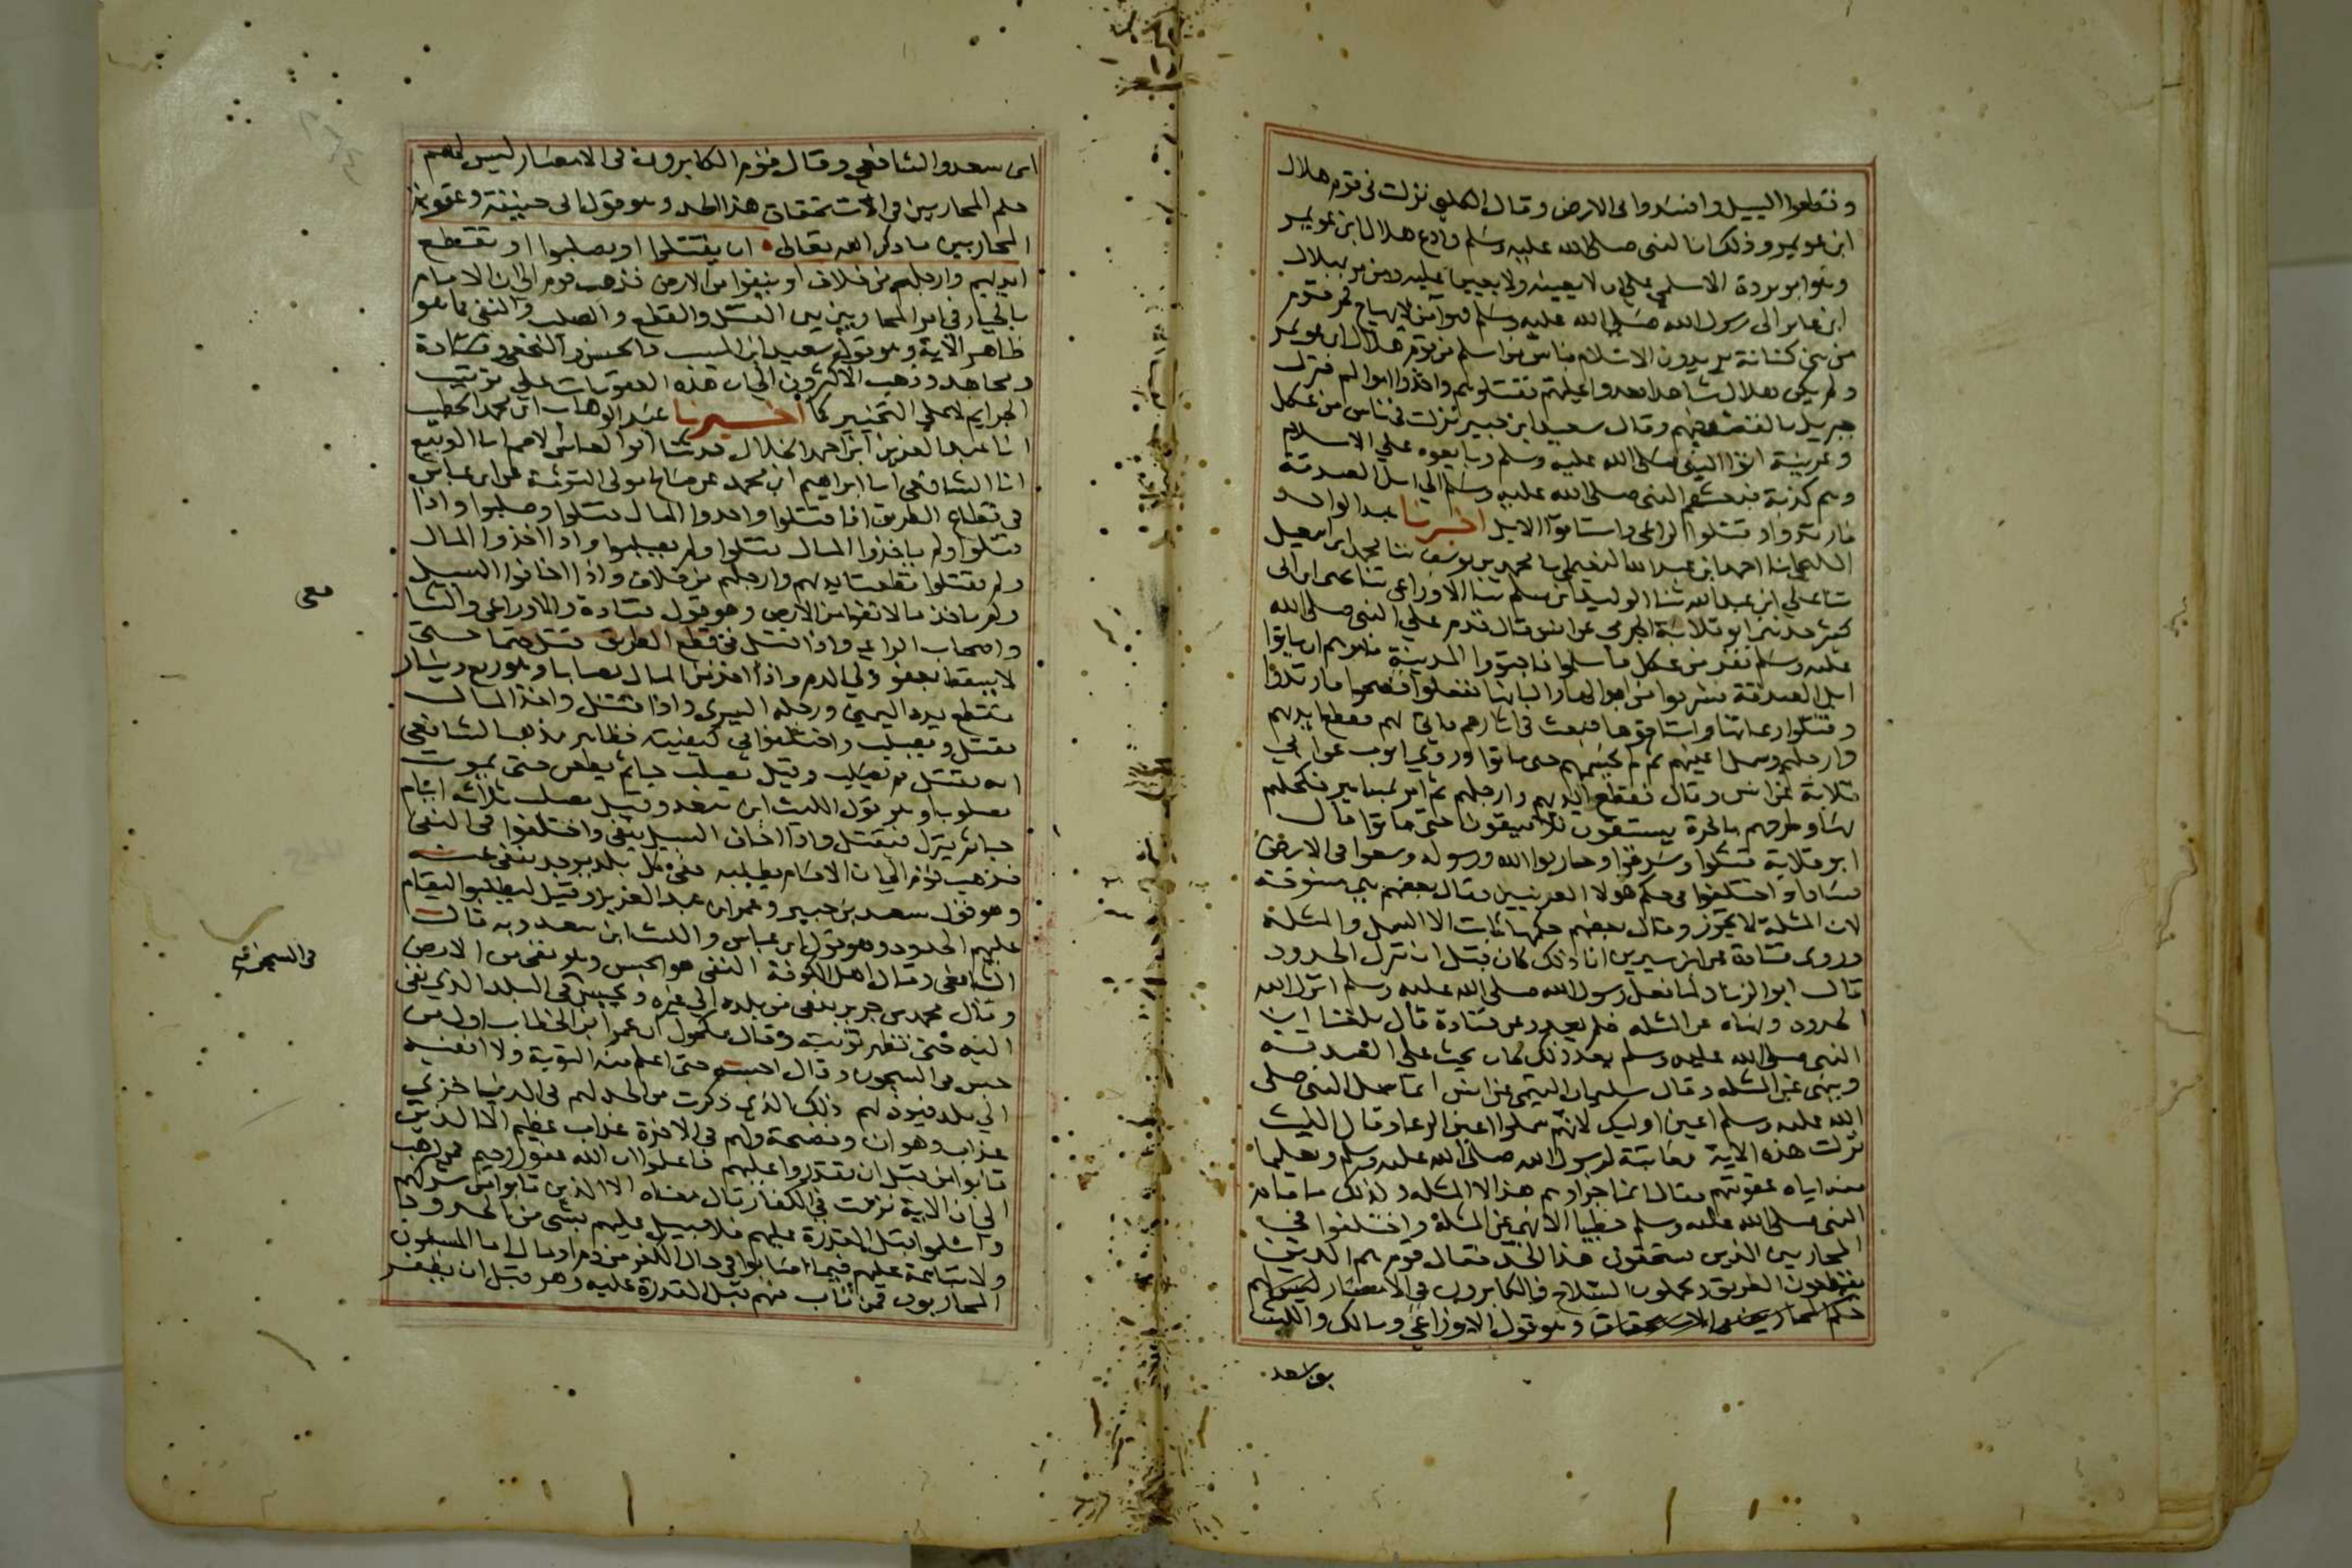 وقطعوا السبيل وافسدوا في الارض وقال الكلبي نزلت في قوم هلال
ابن عويمر وذلك ان النبي صلى الله عليه وسلم وادع هلال ابن عويمر
وهو ابو بردة الاسلمي على ان لا يعينه ولا يعين عليه ومن مر بهلال
ابن عامر الى رسول الله صلى الله عليه وسلم فهو آمن لا يهاج فمر قوم
من بني كنانة يريدون الاسلام بناس من اسلم من قوم هلال ابن عويمر
ولم يكن هلال شاهدا فعدوا عليهم فقتلوهم واخذوا اموالهم فنزل
جبريل بالقضية فيهم وقال سعيد ابن جبير نزلت في ناس من عكل
وعرينة اتوا النبي صلى الله عليه وسلم وبايعوه على الاسلام
وهم كذبة فبعثهم النبي صلى الله عليه وسلم الى ابل الصدقة
فارتدوا وقتلوا الراعي واستاقوا الابل اخبرنا عبد الواحد
المليحي انا احمد ابن عبد الله النعيمي انا محمد بن يوسف ثنا محمد ابن اسمعيل
ثنا علي ابن عبد الله ثنا الوليد ابن مسلم ثنا الاوزاعي ثنا يحيى ابن ابي
كثير حدثني ابو قلابة الجرمي عن انس قال قدم على النبي صلى الله
عليه وسلم نفر من عكل فاسلموا فاجتووا المدينة فامرهم ان ياتوا
ابل الصدقة فيشربوا من ابوالها والبانها ففعلوا فصحوا فارتدوا
وقتلوا رعاتها واستاقوها فبعث في آثارهم فاتي بهم فقطع ايديهم
وارجلهم وسمل اعينهم ثم لم يحسمهم حتى ماتوا وروي ايوب عن ابي
قلابة عن انس وقال فقطع ايديهم وارجلهم ثم امر بمسامير فكحلهم
بها وطرحهم بالحرة يستسقون فلا يسقون حتى ماتوا قال
ابو قلابة قتلوا وسرقوا وحاربوا الله ورسوله وسعوا في الارض
فسادا واختلفوا في حكم هولا العرنيين فقال بعضهم هي منسوخة
لان المثلة لا تجوز وقال بعضهم حكمها ثابت الا السمل والمثلة
وروى قتادة عن ابن سيرين ان ذلك كان قبل ان تنزل الحدود
قال ابو الزناد لما فعل رسول الله صلى الله عليه وسلم انزل الله
الحدود ونهاه عن المثله فلم يعد وعن قتادة قال بلغنا ان
النبي صلى الله عليه وسلم بعد ذلك كان يحث على الصدقة
وينهى عن المثله وقال سليمان التيمي عن انس انما سمل النبي صلى
الله عليه وسلم اعين اوليك لانهم سملوا اعين الرعا وقال الليث
نزلت هذه الاية معاتبة لرسول الله صلى الله عليه وسلم وتعليما
منه اياه عقوبتهم فقال انما جزاوهم هذا لا المثله ولذلك ما قام
النبي صلى الله عليه وسلم خطيبا الا نهى عن المثلة واختلفوا في
المحاربين الذين يستحقون هذا الحد فقال قوم هم الذين
يقطعون الطريق ويحملون السلاح والمكابرون في الامصار ليس لهم
حكم المحاربين في الاستحقاق وهو قول الاوزاعي ومالك والليث
بن سعد
ابن سعد والشافعي وقال قوم المكابرون في الامصار ليس لهم
حكم المحاربين في الاستحقاق هذا الحد وهو قول ابي حنيفة وعقوبة
المحاربين ما ذكر الله تعالى ان يقتلوا او يصلبوا او تقطع
ايديهم وارجلهم من خلاف او ينفوا من الارض فذهب قوم الى ان الامام
بالخيار في امر المحاربين بين القتل والقطع والصلب والنفي كما هو
ظاهر الآية وهو قول سعيد ابن المسيب والحسن والنخعي وقتادة
ومجاهد وذهب الاكثرون الى ان هذه العقوبات على ترتيب
الجرايم لا على التخيير كما اخبرنا عبد الوهاب ابن محمد الخطيب
انا عبد العزيز ابن احمد الخلال حدثنا ابو العباس الاصم انا الربيع
انا الشافعي انا ابراهيم ابن محمد عن صالح مولى التوئمة عن ابن عباس
في قطاع الطريق اذا قتلوا واخذوا المال قتلوا وصلبوا واذا
قتلوا ولم ياخذوا المال قتلوا ولم يصلبوا واذا اخذوا المال
ولم يقتلوا قطعت ايديهم وارجلهم من خلاف واذا اخافوا السبيل
ولم ياخذوا مالا نفوا من الارض وهو قول قتادة والاوزاعي والشا
فعي
واصحاب الراي واذا قتل في قطع الطريق قتل حتما حتى
لا يسقط بعفو ولي الدم واذا اخذ من المال نصابا وهو ربع دينار
تقطع يده اليمنى ورجله اليسرى واذا قتل واخذ المال
يقتل ويصلب واختلفوا في كيفيته فظاهر مذهب الشافعي
انه يقتل ثم يصلب وقيل يصلب حيا ثم يطعن حتى يموت
مصلوبا وهو قول الليث ابن سعد وقيل يصلب ثلاثة ايام
حيا ثم ينزل فيقتل واذا اخاف السبيل ينفى واختلفوا في النفي
فذهب قوم الى ان الامام يطلبه ففي كل بلد يوجد ينفى عنه
وهو قول سعيد بن جبير وعمر ابن عبد العزيز وقيل يطلبوا ليقام
عليهم الحدود وهو قول ابن عباس والليث ابن سعد وبه قال
الشافعي وقال اهل الكوفة النفي هو الحبس وهو نفي من الارض
وقال محمد بن جرير ينفى من بلده الى غيره ويحبس في البلد الذي نفي
في السجن
اليه حتى تظهر توبته وقال مكحول ان عمر ابن الخطاب اول من
حبس في السجون وقال احبسه حتى اعلم منه التوبة ولا انفيه
الى بلد فيوذيهم ذلك الذي ذكرت من الحد لهم في الدنيا خزي
عذاب وهوان وفضيحة ولهم في الاخرة عذاب عظيم الا الذين
تابوا من قبل ان تقدروا عليهم فاعلموا ان الله غفور رحيم فمن ذهب
الى ان الاية نزلت في الكفار قال معناه الا الذين تابوا من شركهم
واسلموا قبل القدرة عليهم فلا سبيل عليهم بشي من الحدود
ولا تباعة عليهم فيما اصابوا في حال الكفر من دم او مال اما المسلمون
المحاربون فمن تاب منهم قبل القدرة عليه وهو قبل ان يظفر